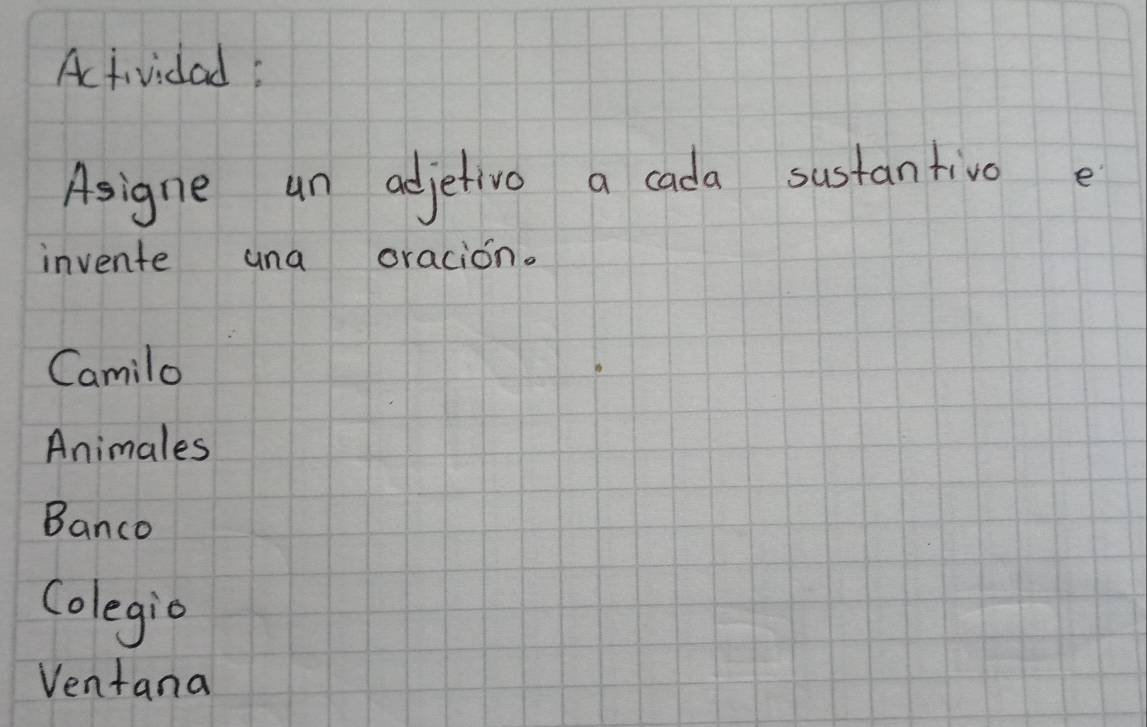 Actividad:
Asigne un adjetivo a cada sustantivo e
invente una oración.
Camilo
Animales
Banco
Colegio
Ventana